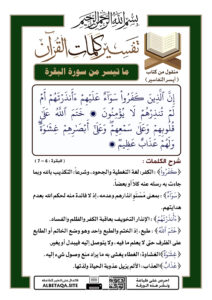 بسم الله الرحمن الرحيم
تفسير كلمات القرآن
ما تيسر من سورة البقرة
منقول من كتاب
( أيسر التفاسير )
إِنَّ الَّذِينَ كَفَرُوا سَوَآءٌ عَلَيْهِمْ ءَأَنذَرْتَهُمْ أَمْ
لَمْ تُنذِرْهُمْ لَا يُؤْمِنُونَ خَتَمَ اللَّهُ عَلَىٰ
قُلُوبِهِمْ وَعَلَىٰ سَمْعِهِمْ وَعَلَىٰ أَبْصَٰرِهِمْ غِشَٰوَةٌ
وَلَهُمْ عَذَابٌ عَظِيمٌ
شرح الكلمات : ( البقرة : 6 - 7 )
﴿كَفَرُوا﴾ : الكفر: لغة التغطية والجحود، وشرعاً: التكذيب بالله وبما
جاءت به رسله عنه كلاً أو بعضاً.
﴿سَوَآءٌ﴾ : بمعنى مستوٍ انذارهم وعدمه، إذ لا فائدة منه لحكم الله بعدم
هدايتهم.
﴿ءَأَنذَرْتَهُمْ﴾ : الإنذار: التخويف بعاقبة الكفر والظلم والفساد.
﴿خَتَمَ اللَّهُ﴾ : طبع، إذ الختم والطبع واحد وهو وضع الخاتم أو الطابع
على الظرف حتى لا يعلم ما فيه، ولا يتوصل إليه فيبدل أو يغير.
الغشاوة: الغطاء يغشى به ما يراد منع وصول شيء إليه.
العذاب: الألم يزيل عذوبة الحياة ولذتها.
ALBETAQA.SITE